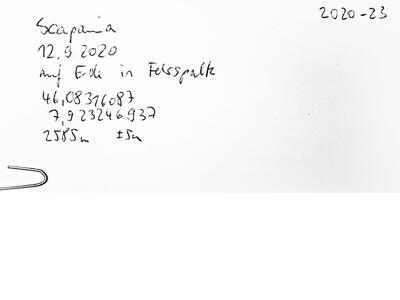 2020-23
Scapania
12.9.2020
auf Erde in Felsspalte
46,08316087
7,923246937
2585m ±5m